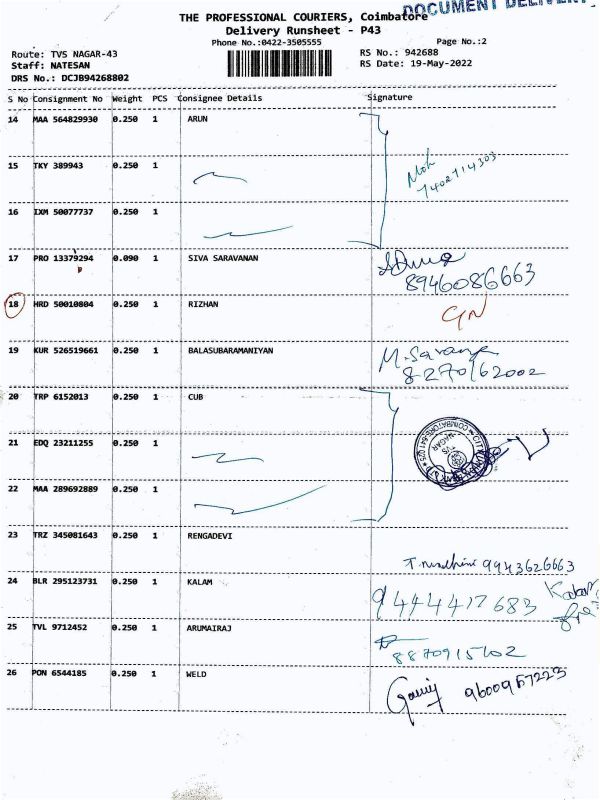 DOCUMENT DELIVERY
THE PROFESSIONAL COURIERS, Coimbatore
Delivery Runsheet - P43
Phone No.:0422-3505555 Page No.:2
Route: TVS NAGAR-43 RS No.: 942688
Staff: NATESAN RS Date: 19-May-2022
DRS No.: DCJB94268802
S No Consignment No Weight PCS Consignee Details Signature
14 MAA 564829930 0.250 1 ARUN
15 TKY 389943 0.250 1
7402714303
16 IXM 50077737 0.250 1
17 PRO 13379294 0.090 1 SIVA SARAVANAN
8946086663
18 HRD 50010804 0.250 1 RIZHAN
GN
19 KUR 526519661 0.250 1 BALASUBARAMANIYAN M. Saranya
8270162002
20 TRP 6152013 0.250 1 CUB
21 EDQ 23211255 0.250 1
TVS NAGAR
22 MAA 289692889 0.250 1
23 TRZ 345081643 0.250 1 RENGADEVI
9943626663
24 BLR 295123731 0.250 1 KALAM
9444417683
25 TVL 9712452 0.250 1 ARUMAIRAJ
8870915102
26 PON 6544185 0.250 1 WELD
9600957223